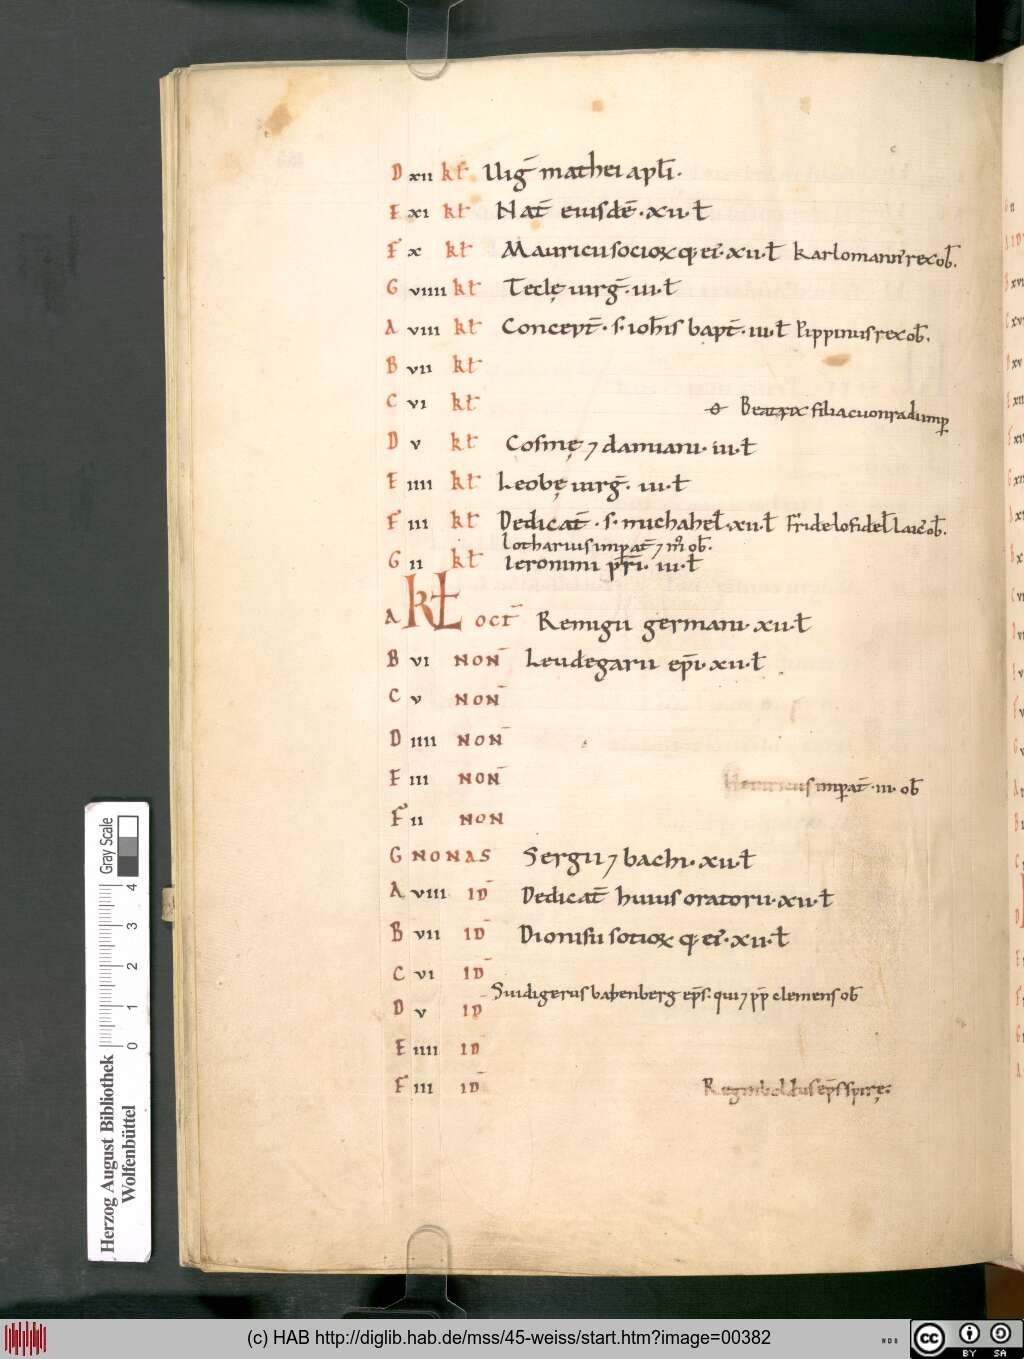 D xii kł Uig̅ mathei apłi.
E xi kł Nat̅ eiusdē. xii. ł
F x kł Mauricii socioꝝ q; ei᷒. xii. ł karlomann᷒ rex ob̅.
G viiii kł Teclę uirg̅. iii. ł
A viii kł Concept̅. s. ioħis bapt̅. iii. ł Pippinus rex ob̅.
B vii kł
C vi kł Beatrix filia cuonradi imp̅
D v kł Cosmę ⁊ damiani. iii. ł
E iiii kł Leobę uirg̅. iii. ł
F iii kł Dedicat̅. s. michahel̅. xii. ł Fridelo fidel̅ laic᷒ ob̅.
lotharius imp̅at̅ ⁊ ob̅.
G ii kł Ieronimi p̅r̅i. iii. ł
A kł oct̅ Remigii germani. xii. ł
B vi NON̅ Leudegarii ep̅i. xii. ł
C v NON̅
D iiii NON̅
E iii NON̅ Heinricus imp̅at̅. iii. ob̅
F ii NON
G NONAS Sergii ⁊ bachi. xii. ł
A viii ID̅ Dedicat̅ huius oratorii. xii. ł
B vii ID̅ Dionisii socioꝝ q; ei᷒. xii. ł
C vi ID̅
Suidigerus babenberg ep̅s. qui ⁊ pp̅ clemens ob̅
D v ID̅
E iiii ID̅
F iii ID̅ Reginboldus ep̅s spirę.
Gray Scale
0 1 2 3 4
Herzog August Bibliothek
Wolfenbüttel
(c) HAB http://diglib.hab.de/mss/45-weiss/start.htm?image=00382
cc BY SA